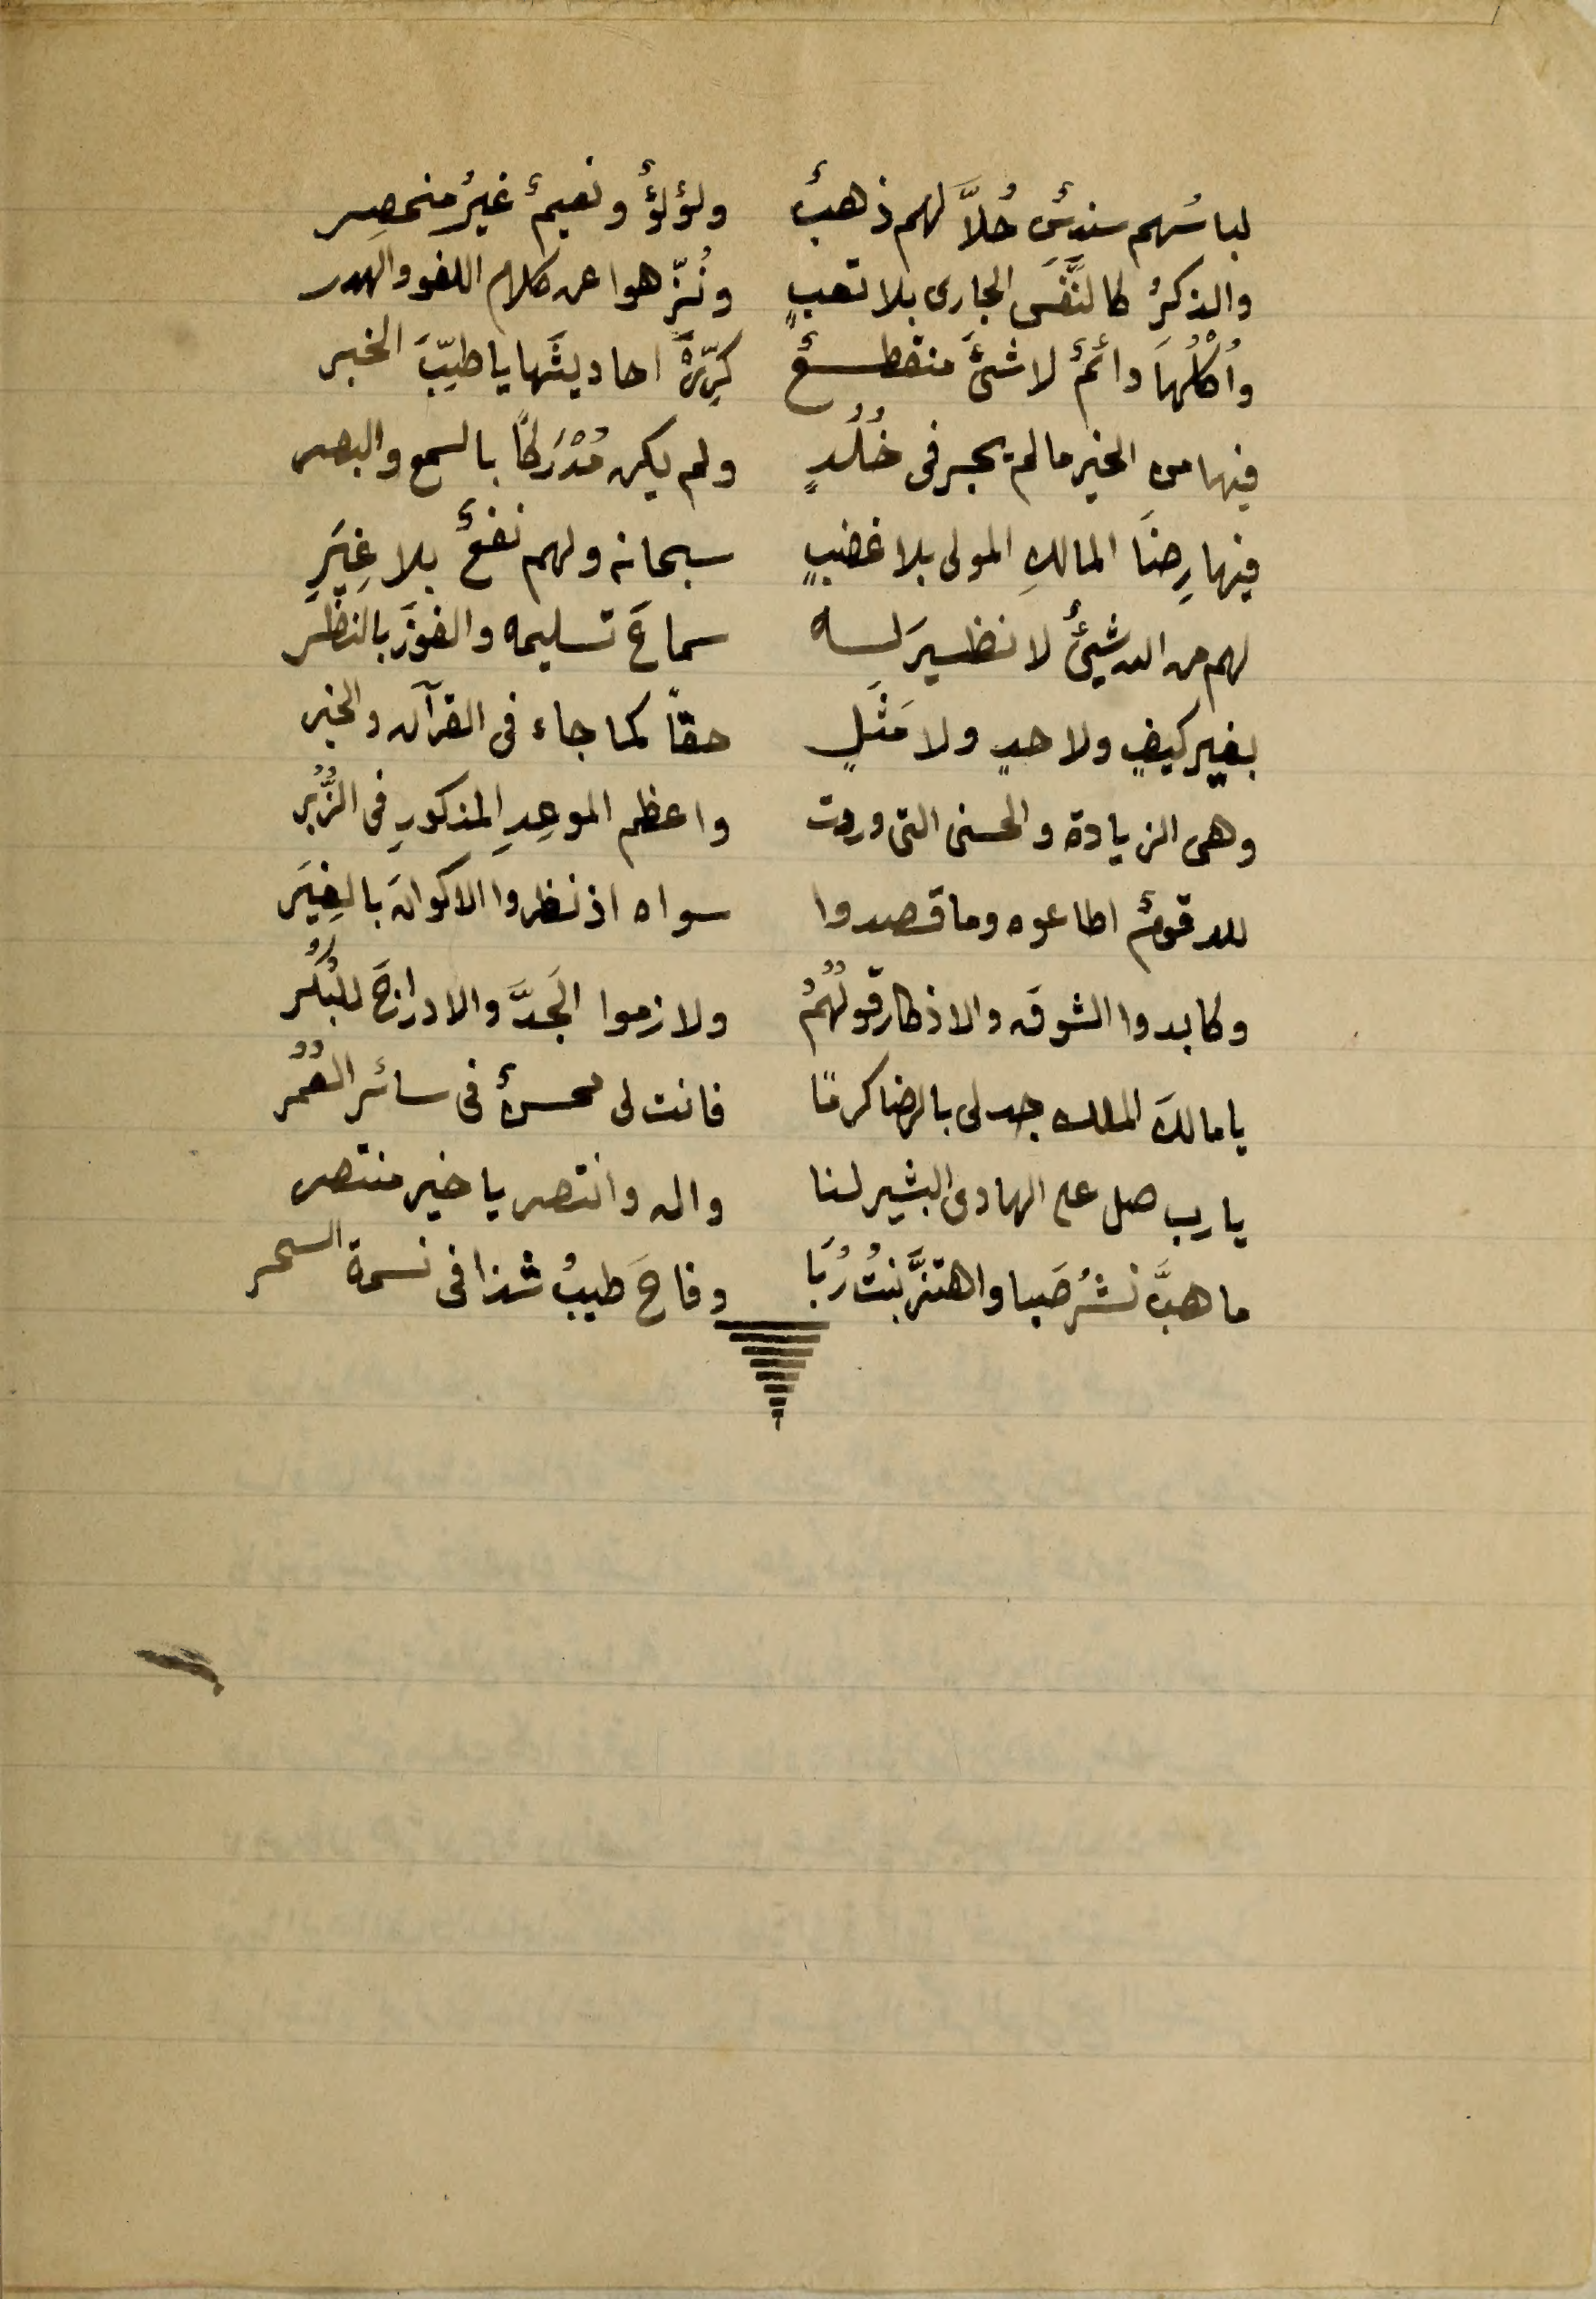 لباسُهم سندسٌ حُلاَّ لهم ذهبٌ ولؤلؤٌ ونعيمٌ غيرُ منحصِر
والذكرُ كالنَّفَسِ الجارى بلا تعبٍ ونُزّهوا عن كلام اللغو والهدر
واُكْلُهاَ دائمٌ لا شئَ منقطعٌ كرِّرْ احاديثَها يا طيِّبَ الخبر
فيها من الخير مالم يجر فى خُلُدٍ ولم يكن مُدْرَكاً بالسمع والبصر
فيها رِضَا المالكِ المولى بلا غضبٍ سبحانه ولهم نفعٌ بلا غِيَرِ
لهم من الله شيئٌ لا نظيرَ له سماعَ تسليمه والفوزَ بالنظَر
بغير كيفٍ ولا حدٍ ولا مَثَلٍ حقاً كما جاء فى القرآن والخبر
وهى الزيادة والحسنى التى وردت واعظم الموعِدِ المذكورِ فى الزُّبُر
لله قومٌ اطاعوه وما قصدوا سواه اذ نظروا الاكوانَ بالغِيَر
وكابدوا الشوقَ والاذكار قوتُهُمُ ولازموا الجَدَّ والادراجَ للبُكُر
يا مالكَ الملك جد لى بالرضا كرمًا فانت لى محسنٌ فى سائر العُمُر
يا رب صل على الهادى البشير لنا واله وانتصر يا خير منتصر
ما هبَّ نشرُ صَبا واهتزَّ نبتُ رُبَا وفاحَ طيبُ شذا فى نسمة السحر